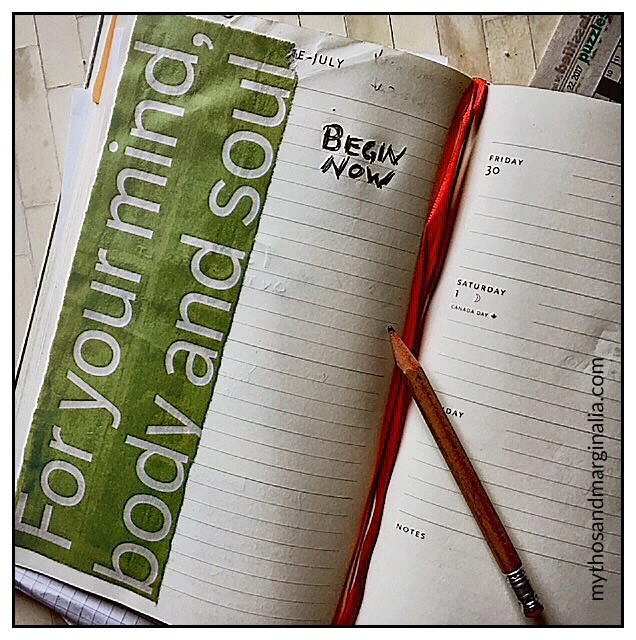 For your mind,
body and soul
E-JULY
BEGIN
NOW
FRIDAY
30
SATURDAY
1
CANADA DAY
DAY
NOTES
puzzles
22, 2017
mythosandmarginalia.com